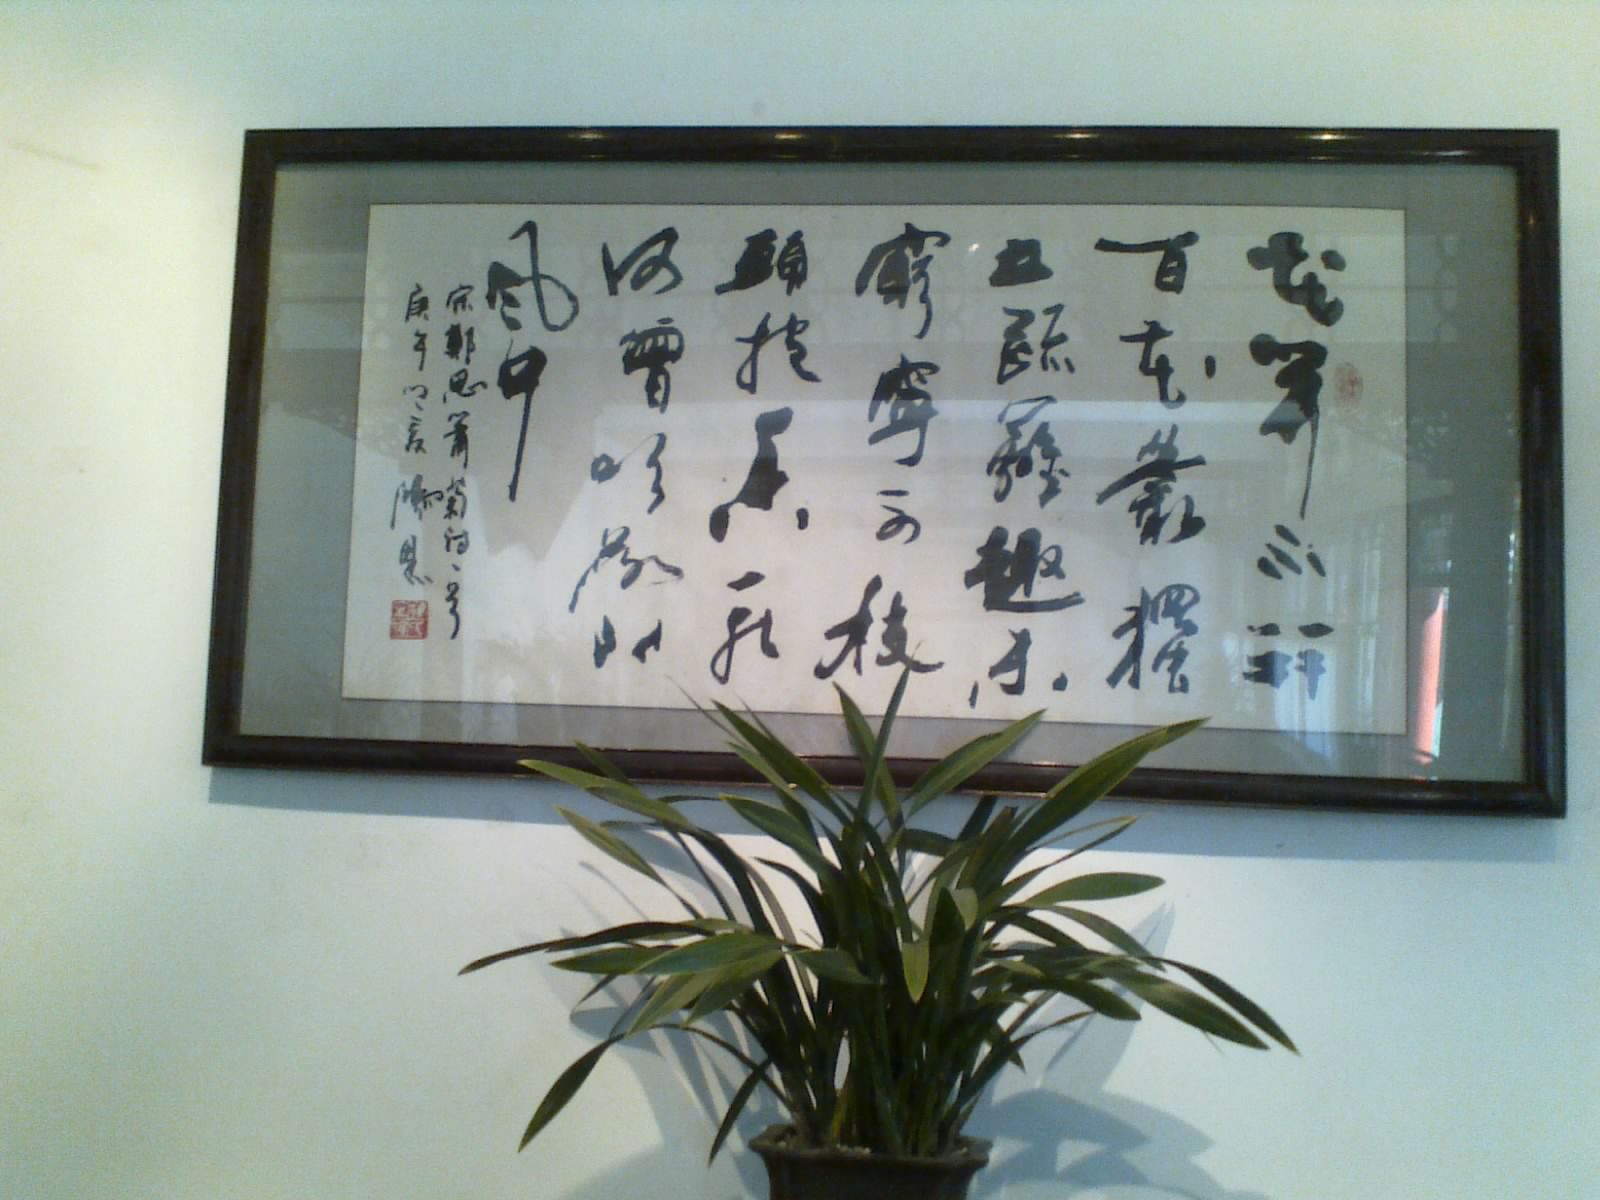 花開不并
百花叢獨
立疏籬趣未
窮寧可枝
頭抱香死
何曾吹落北
風中
宋鄭思肖菊詩一首
庚午